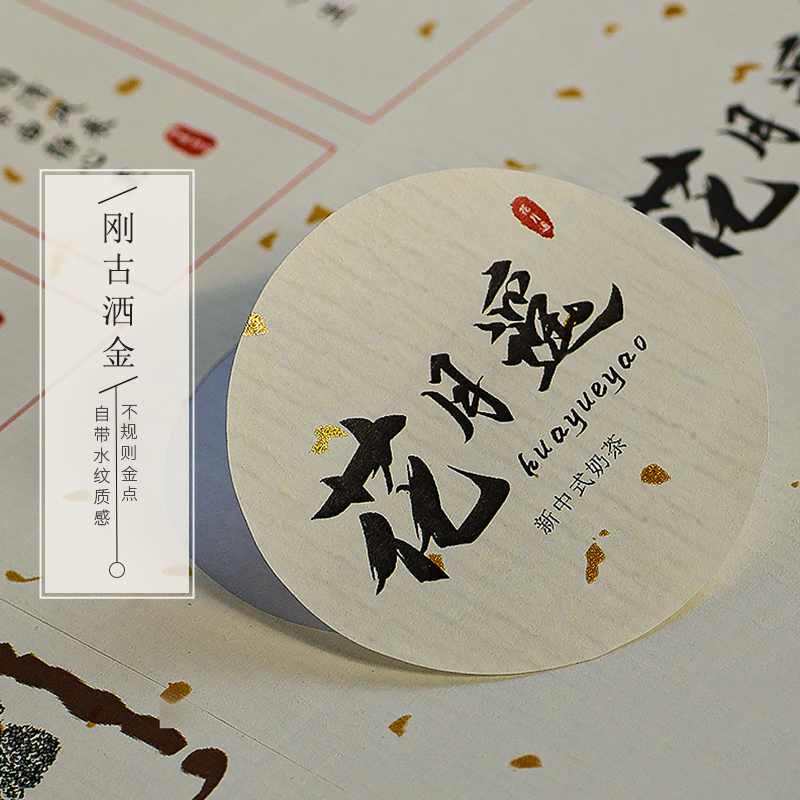 刚古洒金
不规则金点
自带水纹质感
花月邀
huayueyao
新中式奶茶
花月